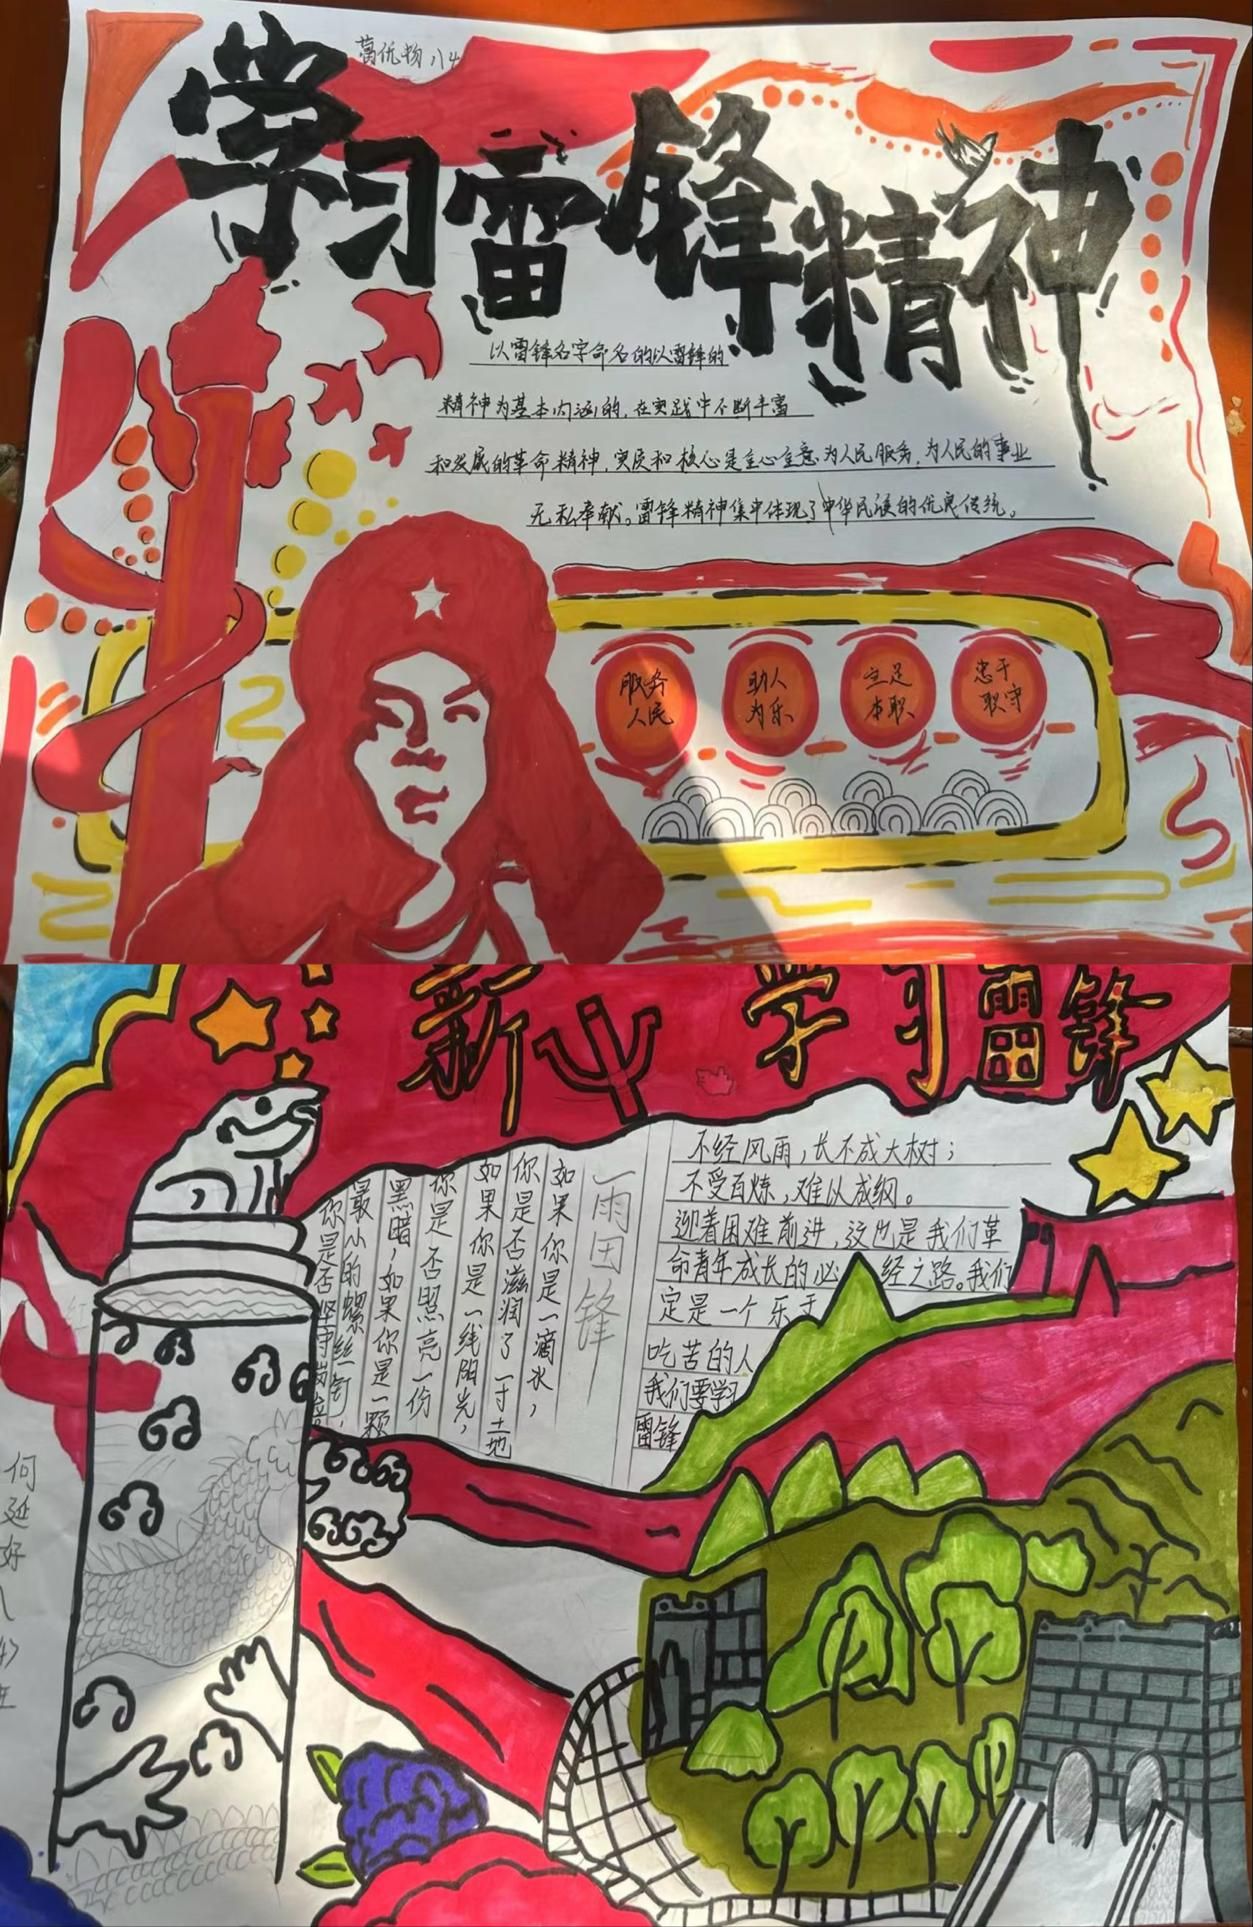 学习雷锋精神
以雷锋名字命名的以雷锋的
精神为基本内涵的,在实践中不断丰富
和发展的革命精神,实质和核心是全心全意为人民服务,为人民的事业
无私奉献。雷锋精神集中体现了中华民族的优良传统。
服务
人民
助人
为乐
立足
本职
忠于
职守
新 学习雷锋
不经风雨,长不成大树;
不受百炼,难以成钢。
迎着困难前进,这也是我们革
命青年成长的必 经之路。我们
定是一个乐于
吃苦的人
我们要学习
雷锋
一雨因锋
如果你是一滴水,
你是否滋润了一寸土地
如果你是一线阳光,
你是否照亮一份
黑暗,如果你是一颗
最小的螺丝钉,
你是否坚守岗位
何延好八